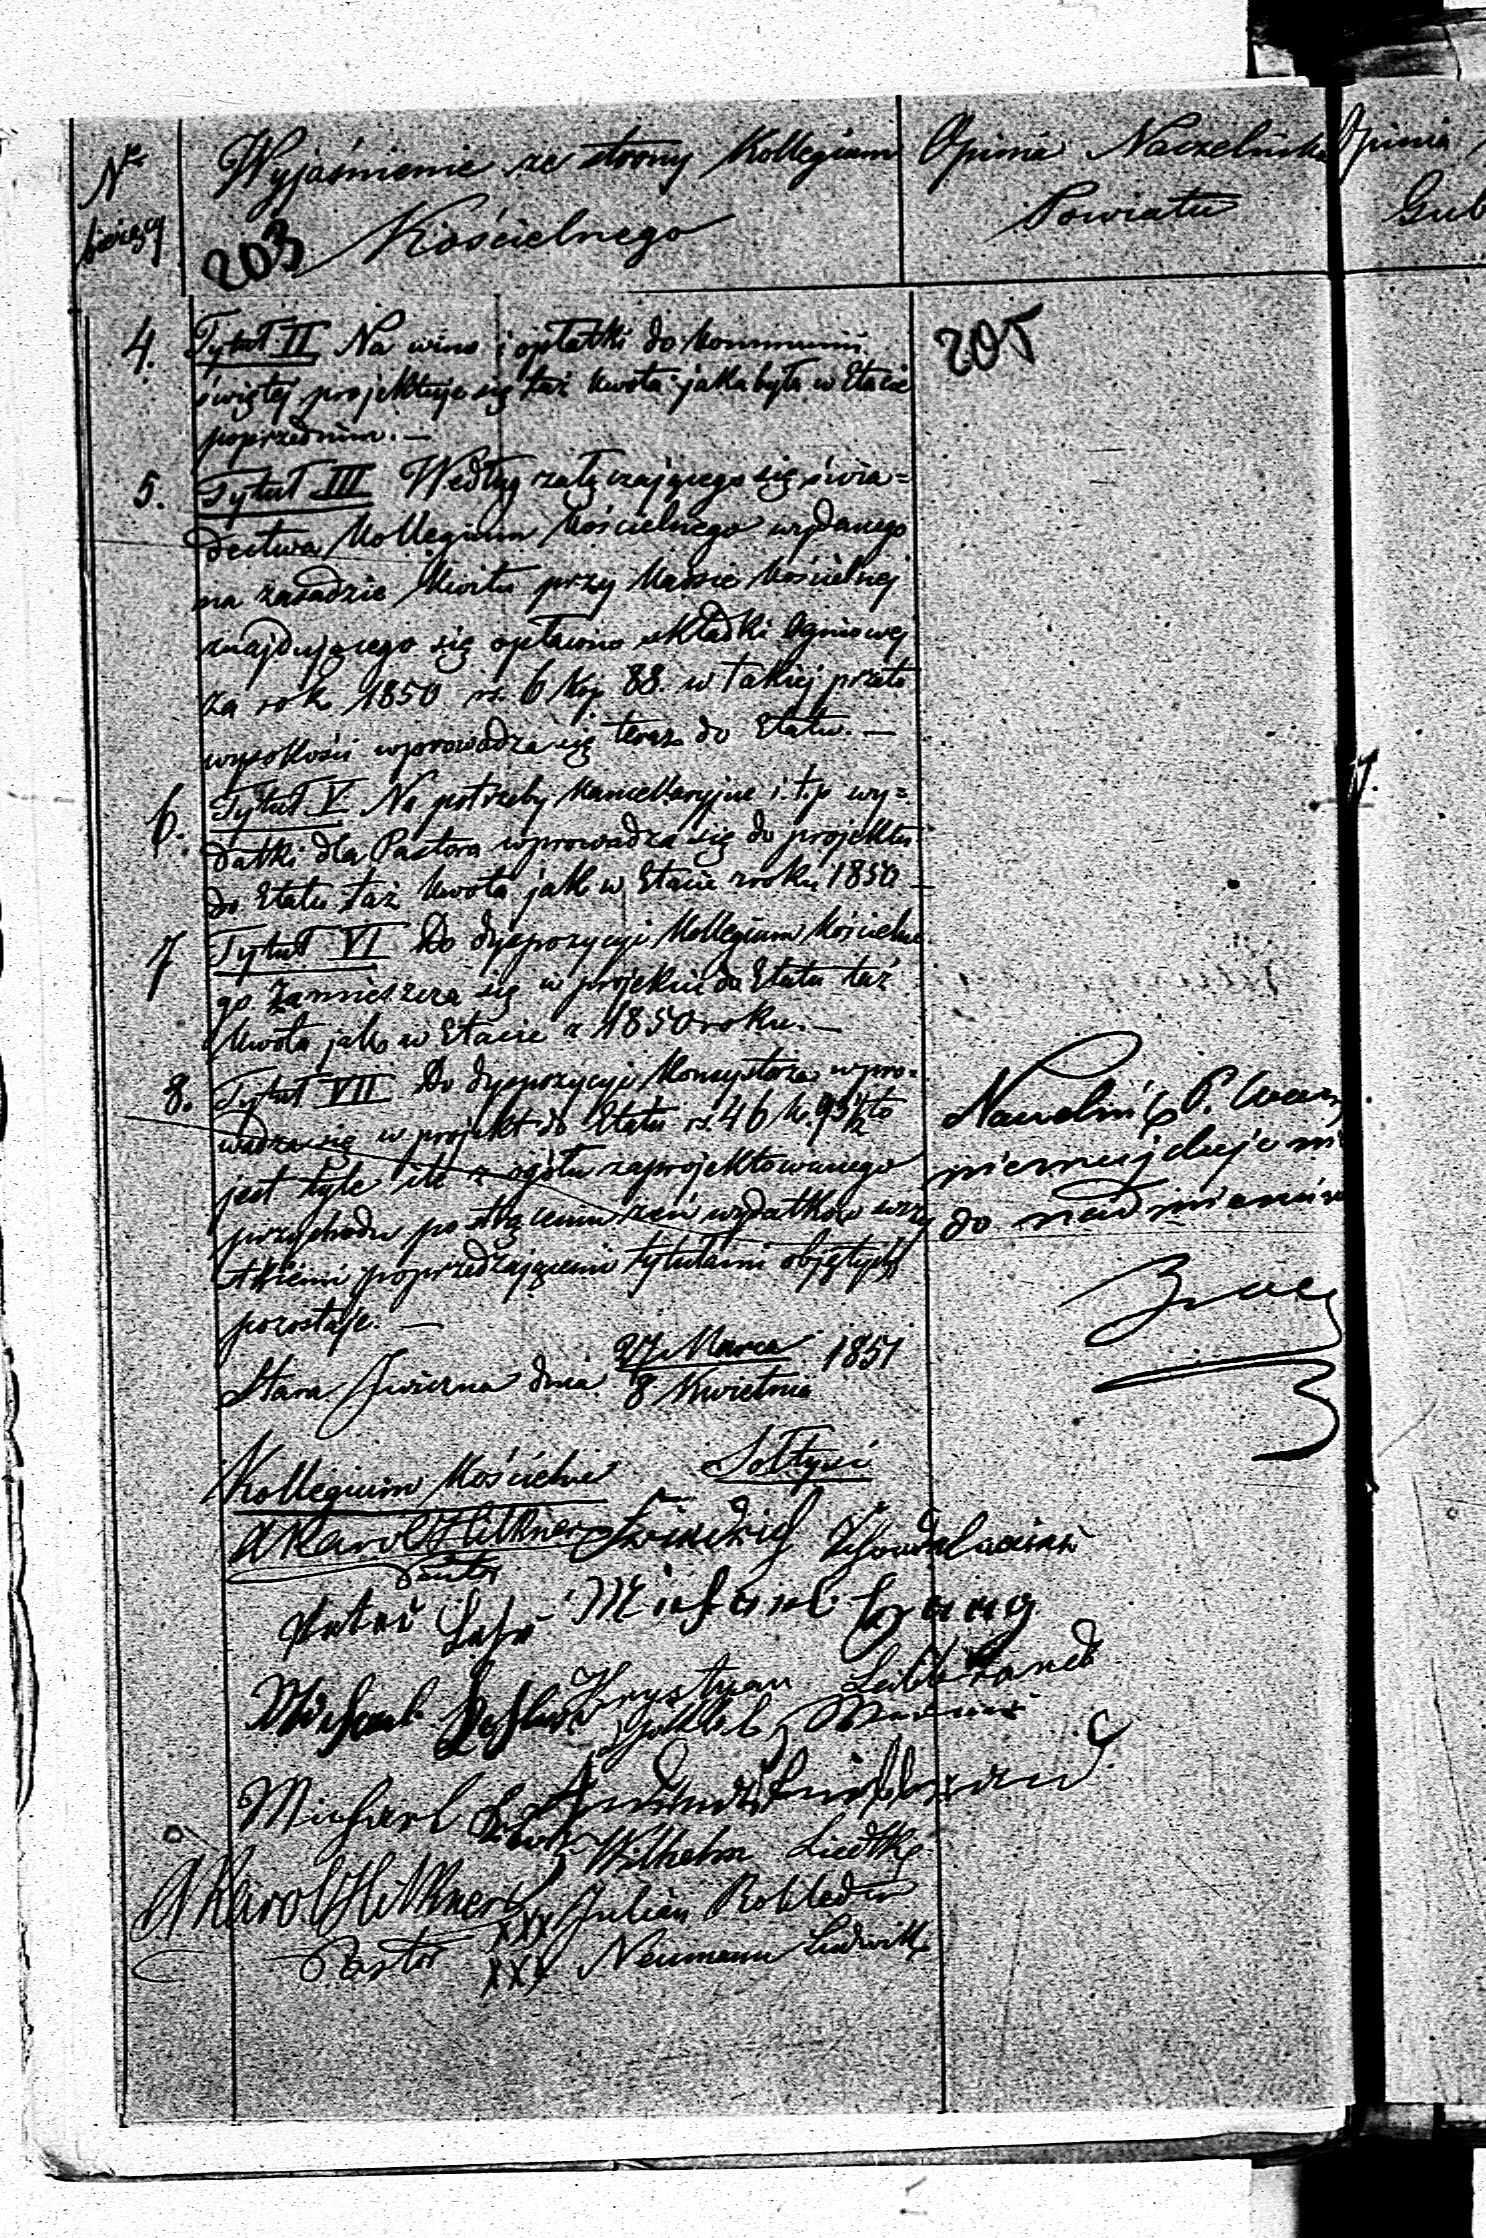 Nr bieżący
Wyjaśnienie ze strony Kollegium
Kościelnego
203
Opinia Naczelnika
Powiatu
Opinia
Gub
205
4. Tytuł II Na wino i opłatki do kommunii
świętej projektuje się taż kwota jaka była w Etacie
poprzednim. —
5. Tytuł III Według załączającego się świa=
dectwa Kollegium Kościelnego wydanego
na zasadzie Kwitu przy Kassie Kościelnej
znajdującego się opłacono składki Ogniowej
za rok 1850 rs. 6 kop 88. w takiej przeto
wysokości wprowadza się teraz do Etatu. —
6. Tytuł V Na potrzeby Kancellaryjne i. t. p wy=
datki dla Pastora wprowadza się do projektu
do Etatu taż kwota jak w Etacie z roku 1850 —
7 Tytuł VI Do dyspozycyi Kollegium Kościelne
go zamieszcza się w projekcie do Etatu taż
kwota jak w Etacie z 1850 roku. —
8. Tytuł VII Do dyspozycyi Konsystorza wpro=
wadza się w projekt do Etatu rs. 46 k. to
jest tyle ile z ogółu zaprojektowanego
przychodu po strąceniu zeń wydatków wszy
stkiemi poprzedzającemi tytułami objętych
pozostaje. —
Stara Iwiczna dnia 27 Marca / 8 Kwietnia 1851
Naczelnik P. Warsz.
nieznajduje nic
do nadmienienia
Kollegium Kościelne Sołtysi
Karol Helkner
Pastor
Michael
Michael Krystyan
Michael
Wilhelm Liedtke
Karol Helkner xxx Julian
Pastor xxx Neumann Ludwik